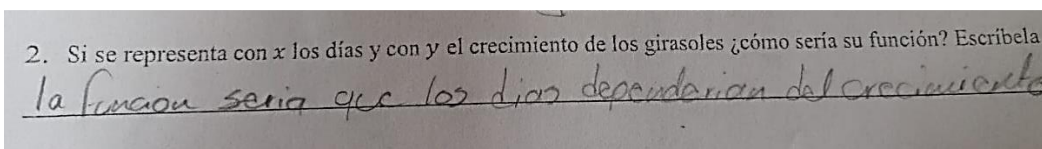 2. Si se representa con x los días y con y el crecimiento de los girasoles ¿cómo sería su función? Escríbela
la función seria que los dias dependerian del crecimiento